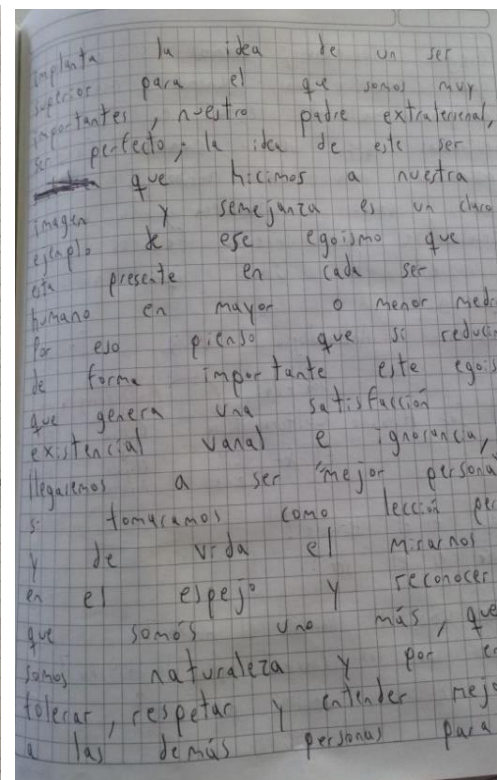 implanta la idea de un ser
superior para el que somos muy
importantes, nuestro padre extraterrenal,
ser perfecto; la idea de este ser
que hicimos a nuestra
imagen y semejanza es un claro
ejemplo de ese egoismo que
esta presente en cada ser
humano en mayor o menor
Por eso pienso que si
de forma importante este
que genera una satisfacción
existencial vanal e ignorancia,
llegaremos a ser "mejor
si tomaramos como lección
y de vida el mirarnos
en el espejo y reconocer
que somós uno más, que
somos naturaleza y por
tolerar, respetar y entender
a las demás personas para